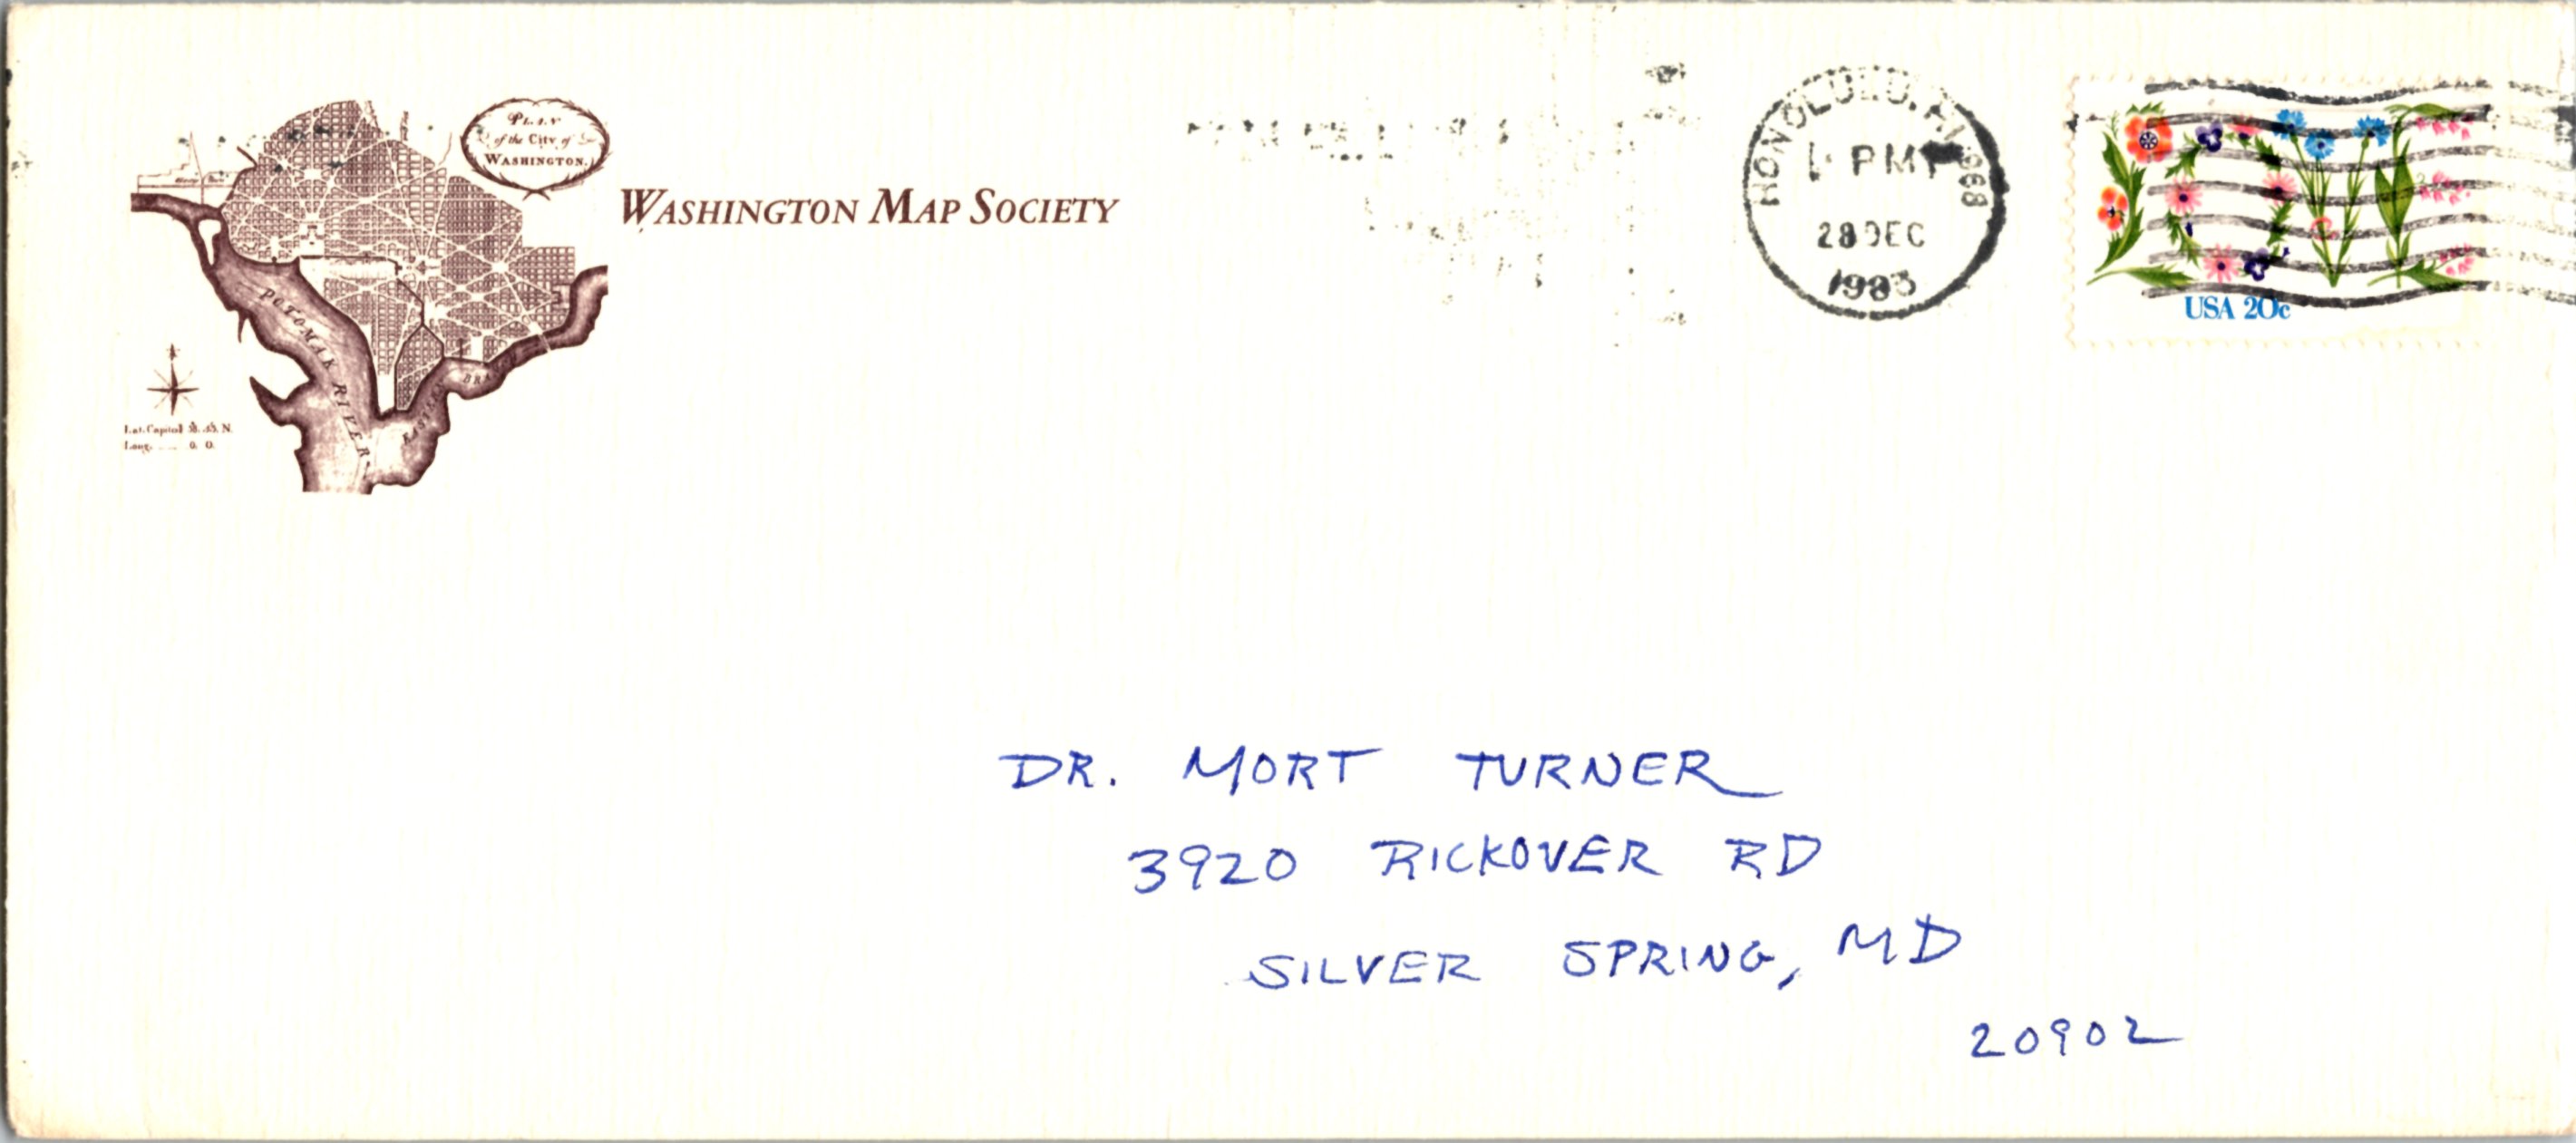 PLAN
of the City of
WASHINGTON.
WASHINGTON MAP SOCIETY
POTOMAK RIVER
EASTERN BRANCH
Lat. Capitol 38. 53. N.
Long. 0. 0.
HONOLULU, HI 968
PM
28 DEC
1983
LOVE
USA 20c
DR. MORT TURNER
3920 RICKOVER RD
SILVER SPRING, MD
20902